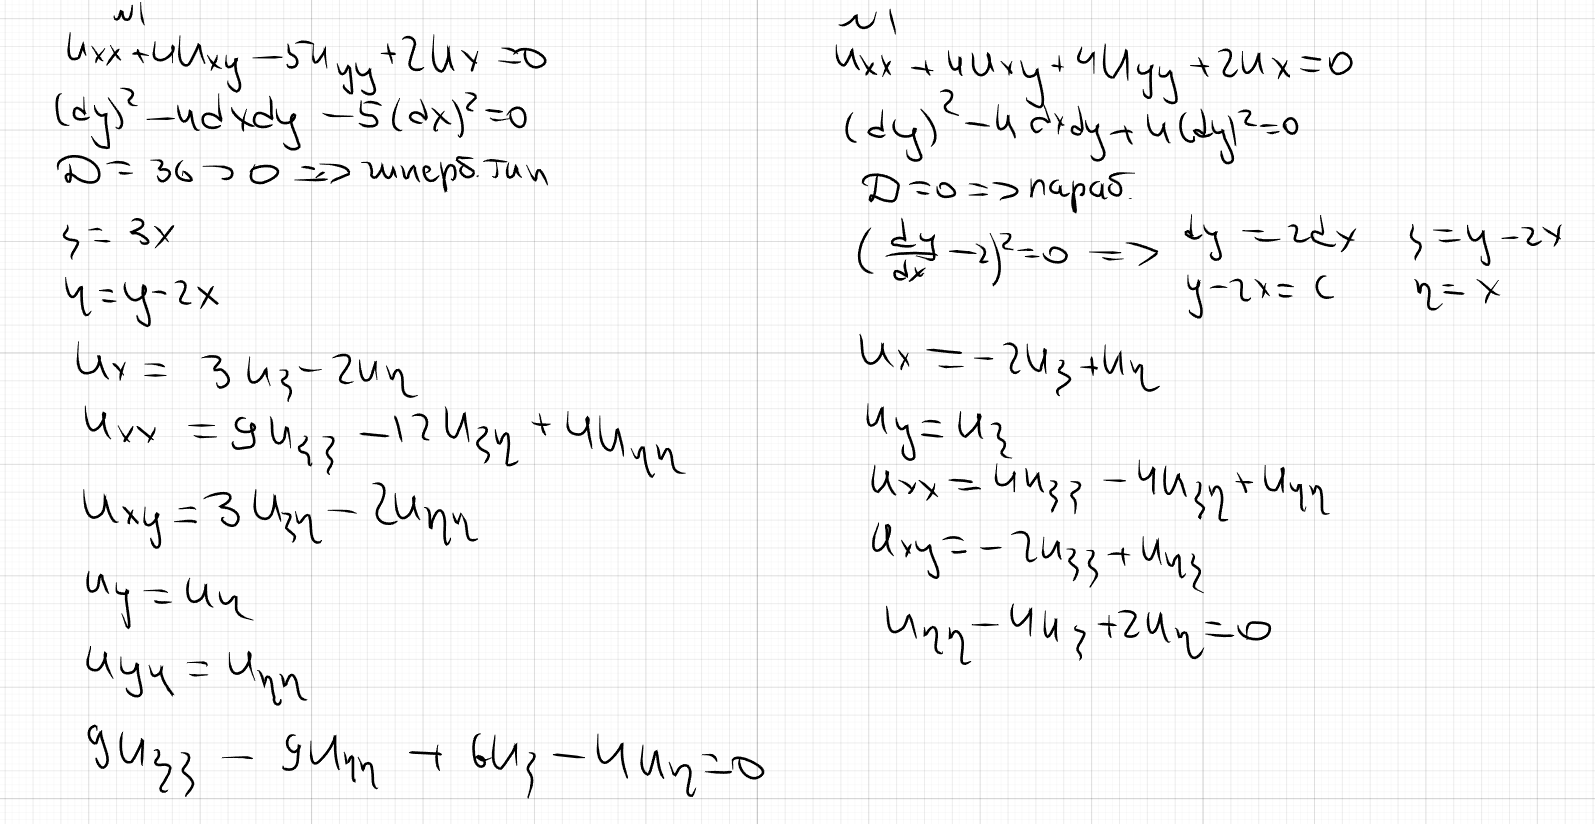 N1
u_xx + 4u_xy - 5u_yy + 2u_x = 0
(dy)² - 4dxdy - 5(dx)² = 0
D = 36 > 0 => гиперб. тип
ξ = 3x
η = y - 2x
u_x = 3u_ξ - 2u_η
u_xx = 9u_ξξ - 12u_ξη + 4u_ηη
u_xy = 3u_ξη - 2u_ηη
u_y = u_η
u_yy = u_ηη
9u_ξξ - 9u_ηη + 6u_ξ - 4u_η = 0
N1
u_xx + 4u_xy + 4u_yy + 2u_x = 0
(dy)² - 4dxdy + 4(dy)² = 0
D = 0 => параб.
(dy/dx - 2)² = 0 => dy = 2dx ξ = y - 2x
y - 2x = C η = x
u_x = -2u_ξ + u_η
u_y = u_ξ
u_xx = 4u_ξξ - 4u_ξη + u_ηη
u_xy = -2u_ξξ + u_ηξ
u_ηη - 4u_ξ + 2u_η = 0